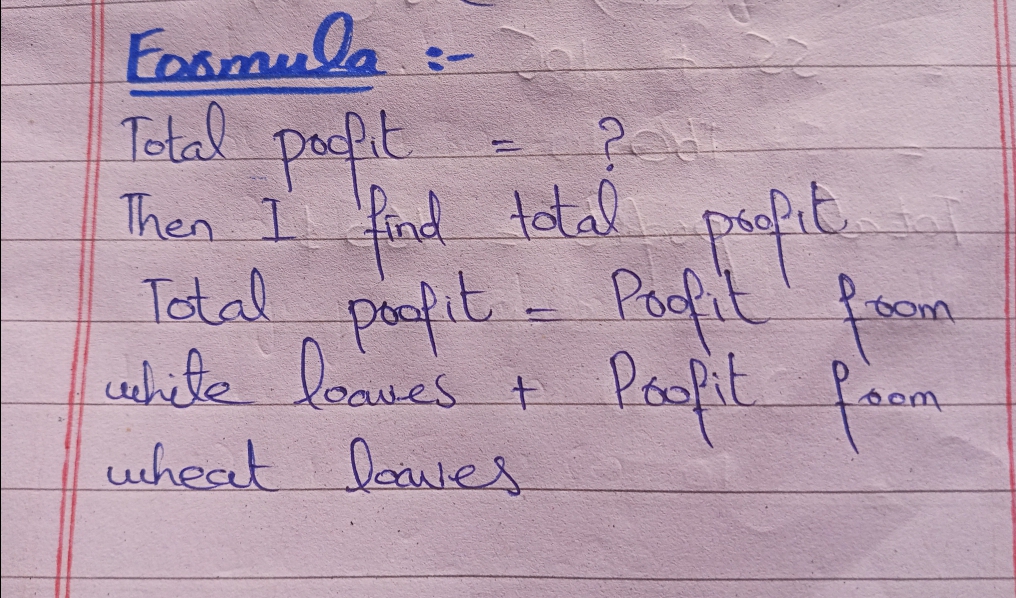 Formula :-
Total profit = ?
Then I find total profit
Total profit = Profit from
white loaves + Profit from
wheat loaves